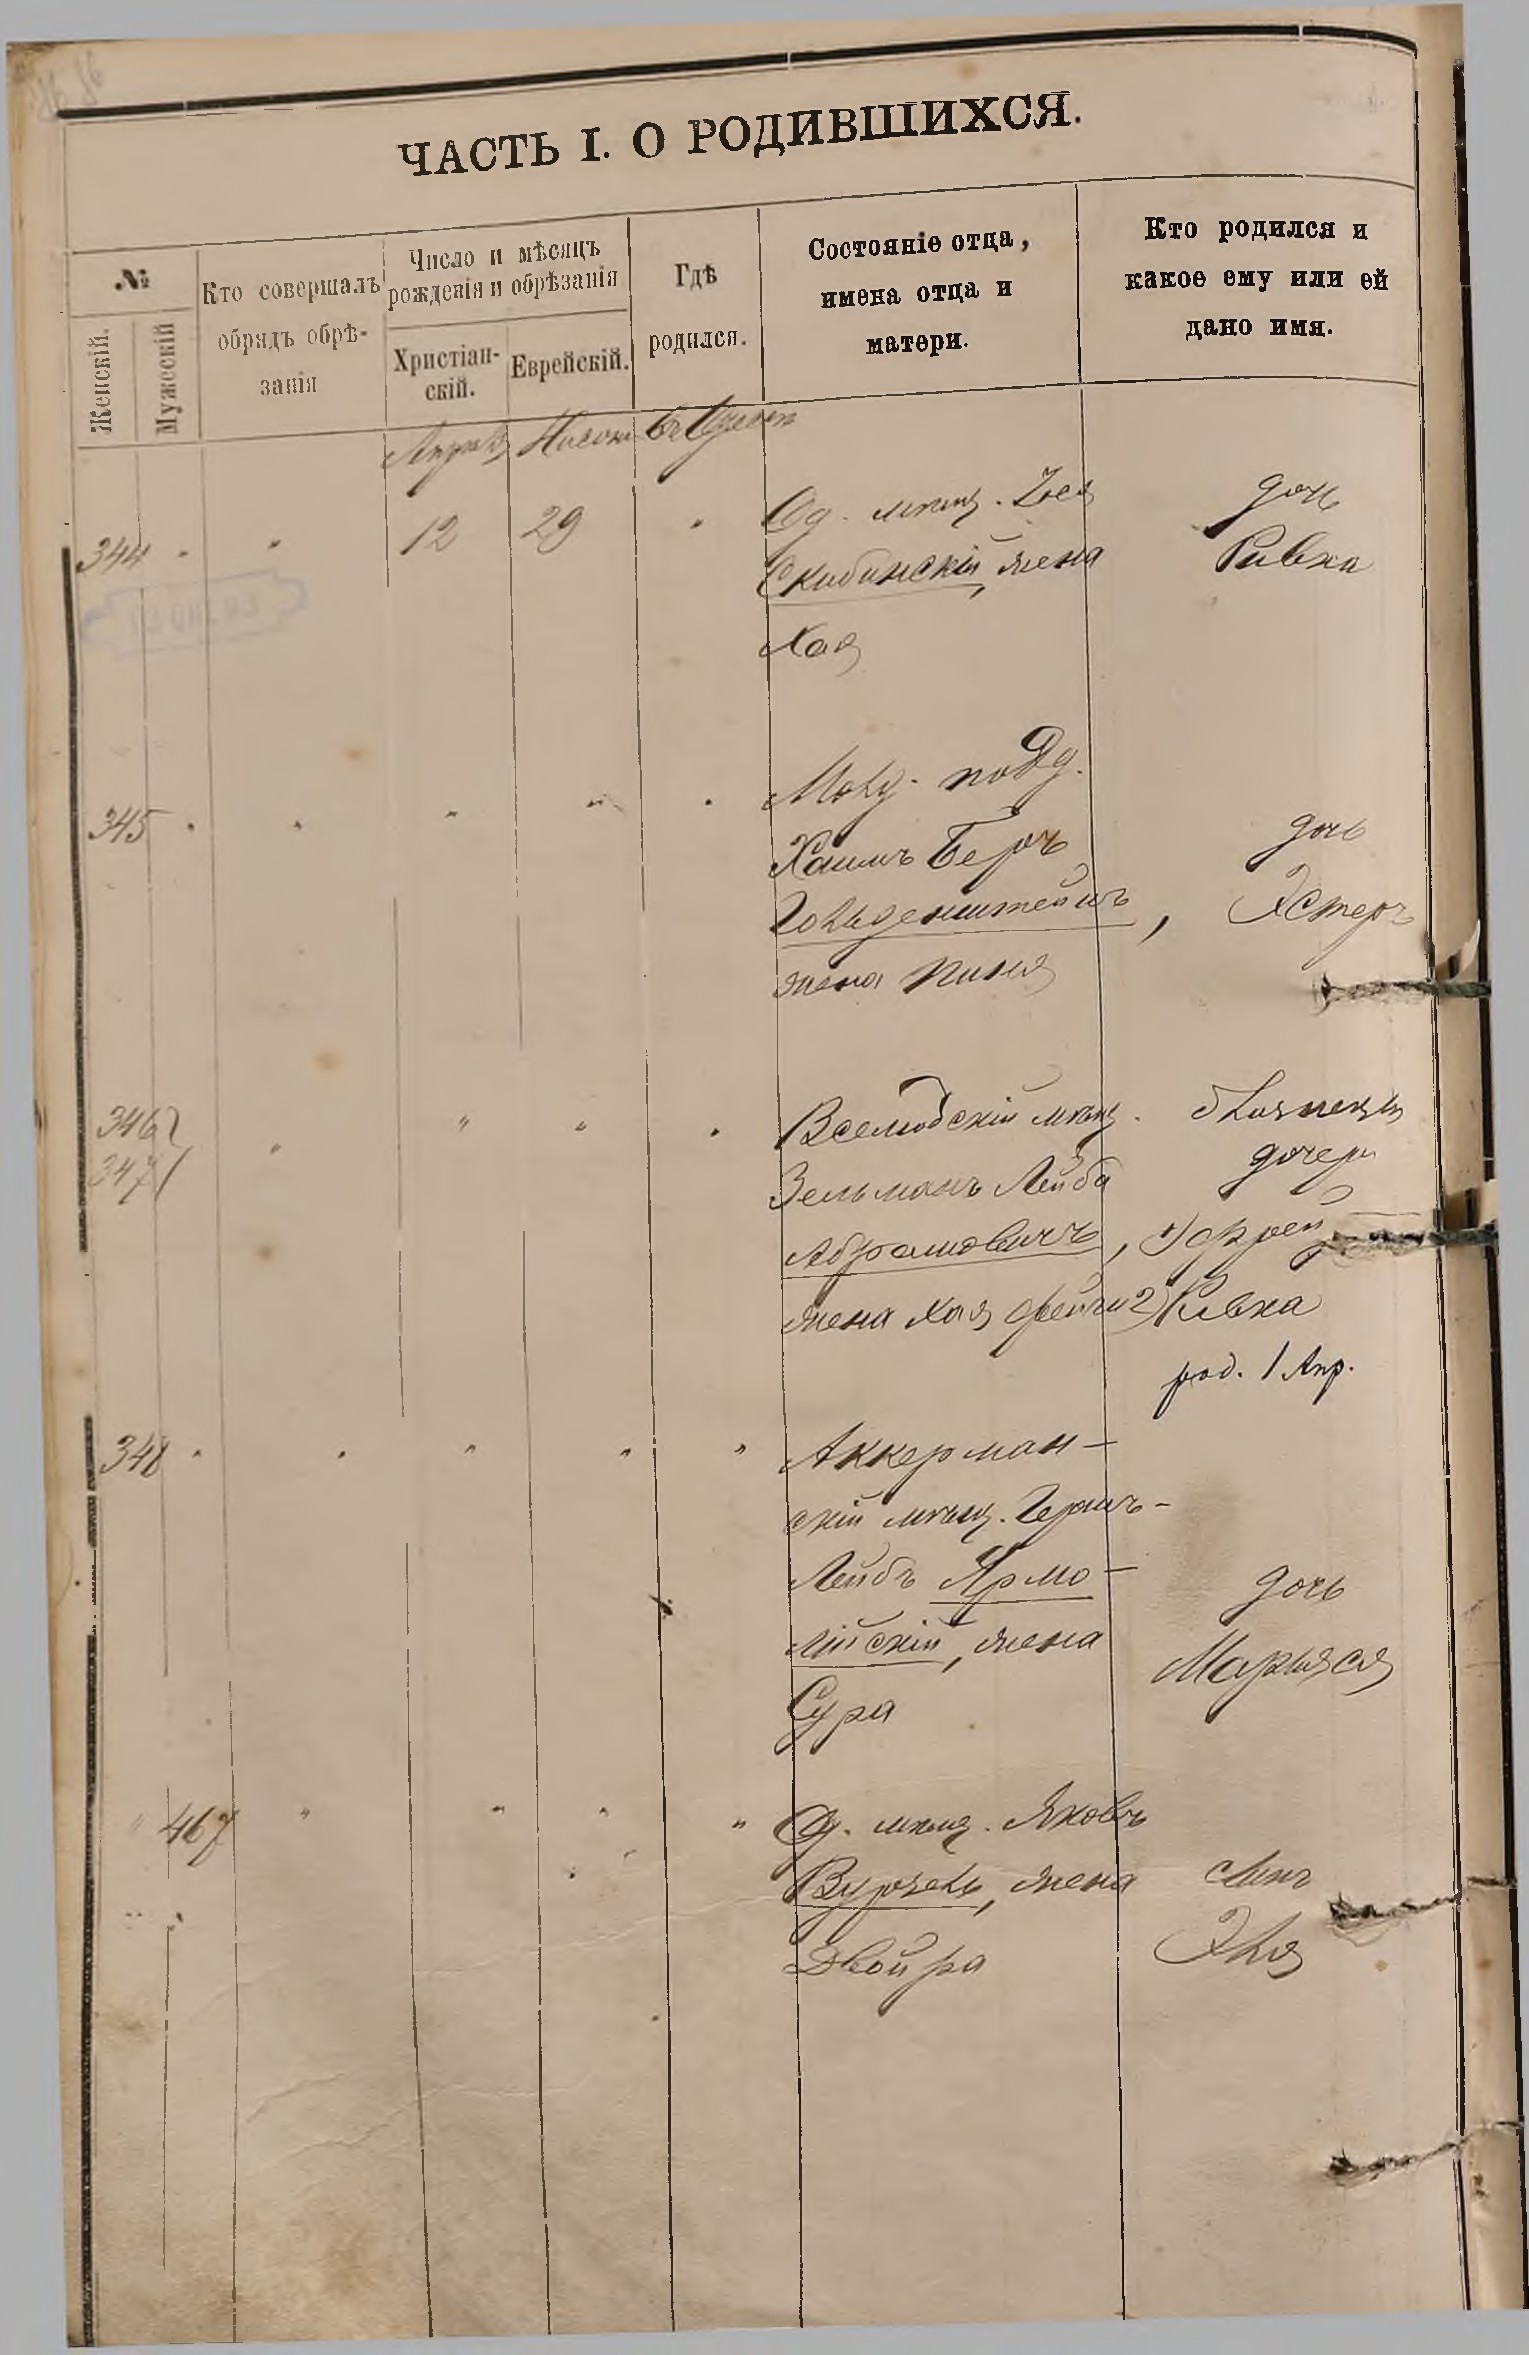 ЧАСТЬ I. О РОДИВШИХСЯ.
№
Женскій.
Мужескій
Кто совершалъ
обрядъ обрѣ-
занія
Число и мѣсяцъ
рожденія и обрѣзанія
Христіан-
скій.
Еврейскій.
Гдѣ
родился.
Состояніе отца,
имена отца и
матери.
Кто родился и
какое ему или ей
дано имя.
Апрѣль Нисонъ Въ Одессѣ
344 " " 12 29 " Од. мѣщ.
Скибинскій, жена
Хая
дочь
Ривка
345 " " " " " Молд. подд.
Хаимъ Беръ
Гольденштейнъ,
жена Пиня
дочь
Эстеръ
346
347
" " " "
мѣщ.
Зельманъ Лейба
Абрамовичъ,
жена Хая Фейга
близнецы
дочери
1)
2) Ривка
род. 1 Апр.
348 " " " " " Аккерман-
скій мѣщ. Гершъ-
Лейбъ Ярмо-
лійскій, жена
Сура
дочь
Марьяся
" 467 " " " " Од. мѣщ. Яковъ
Вурзель, жена
Двойра
сынъ
Эля